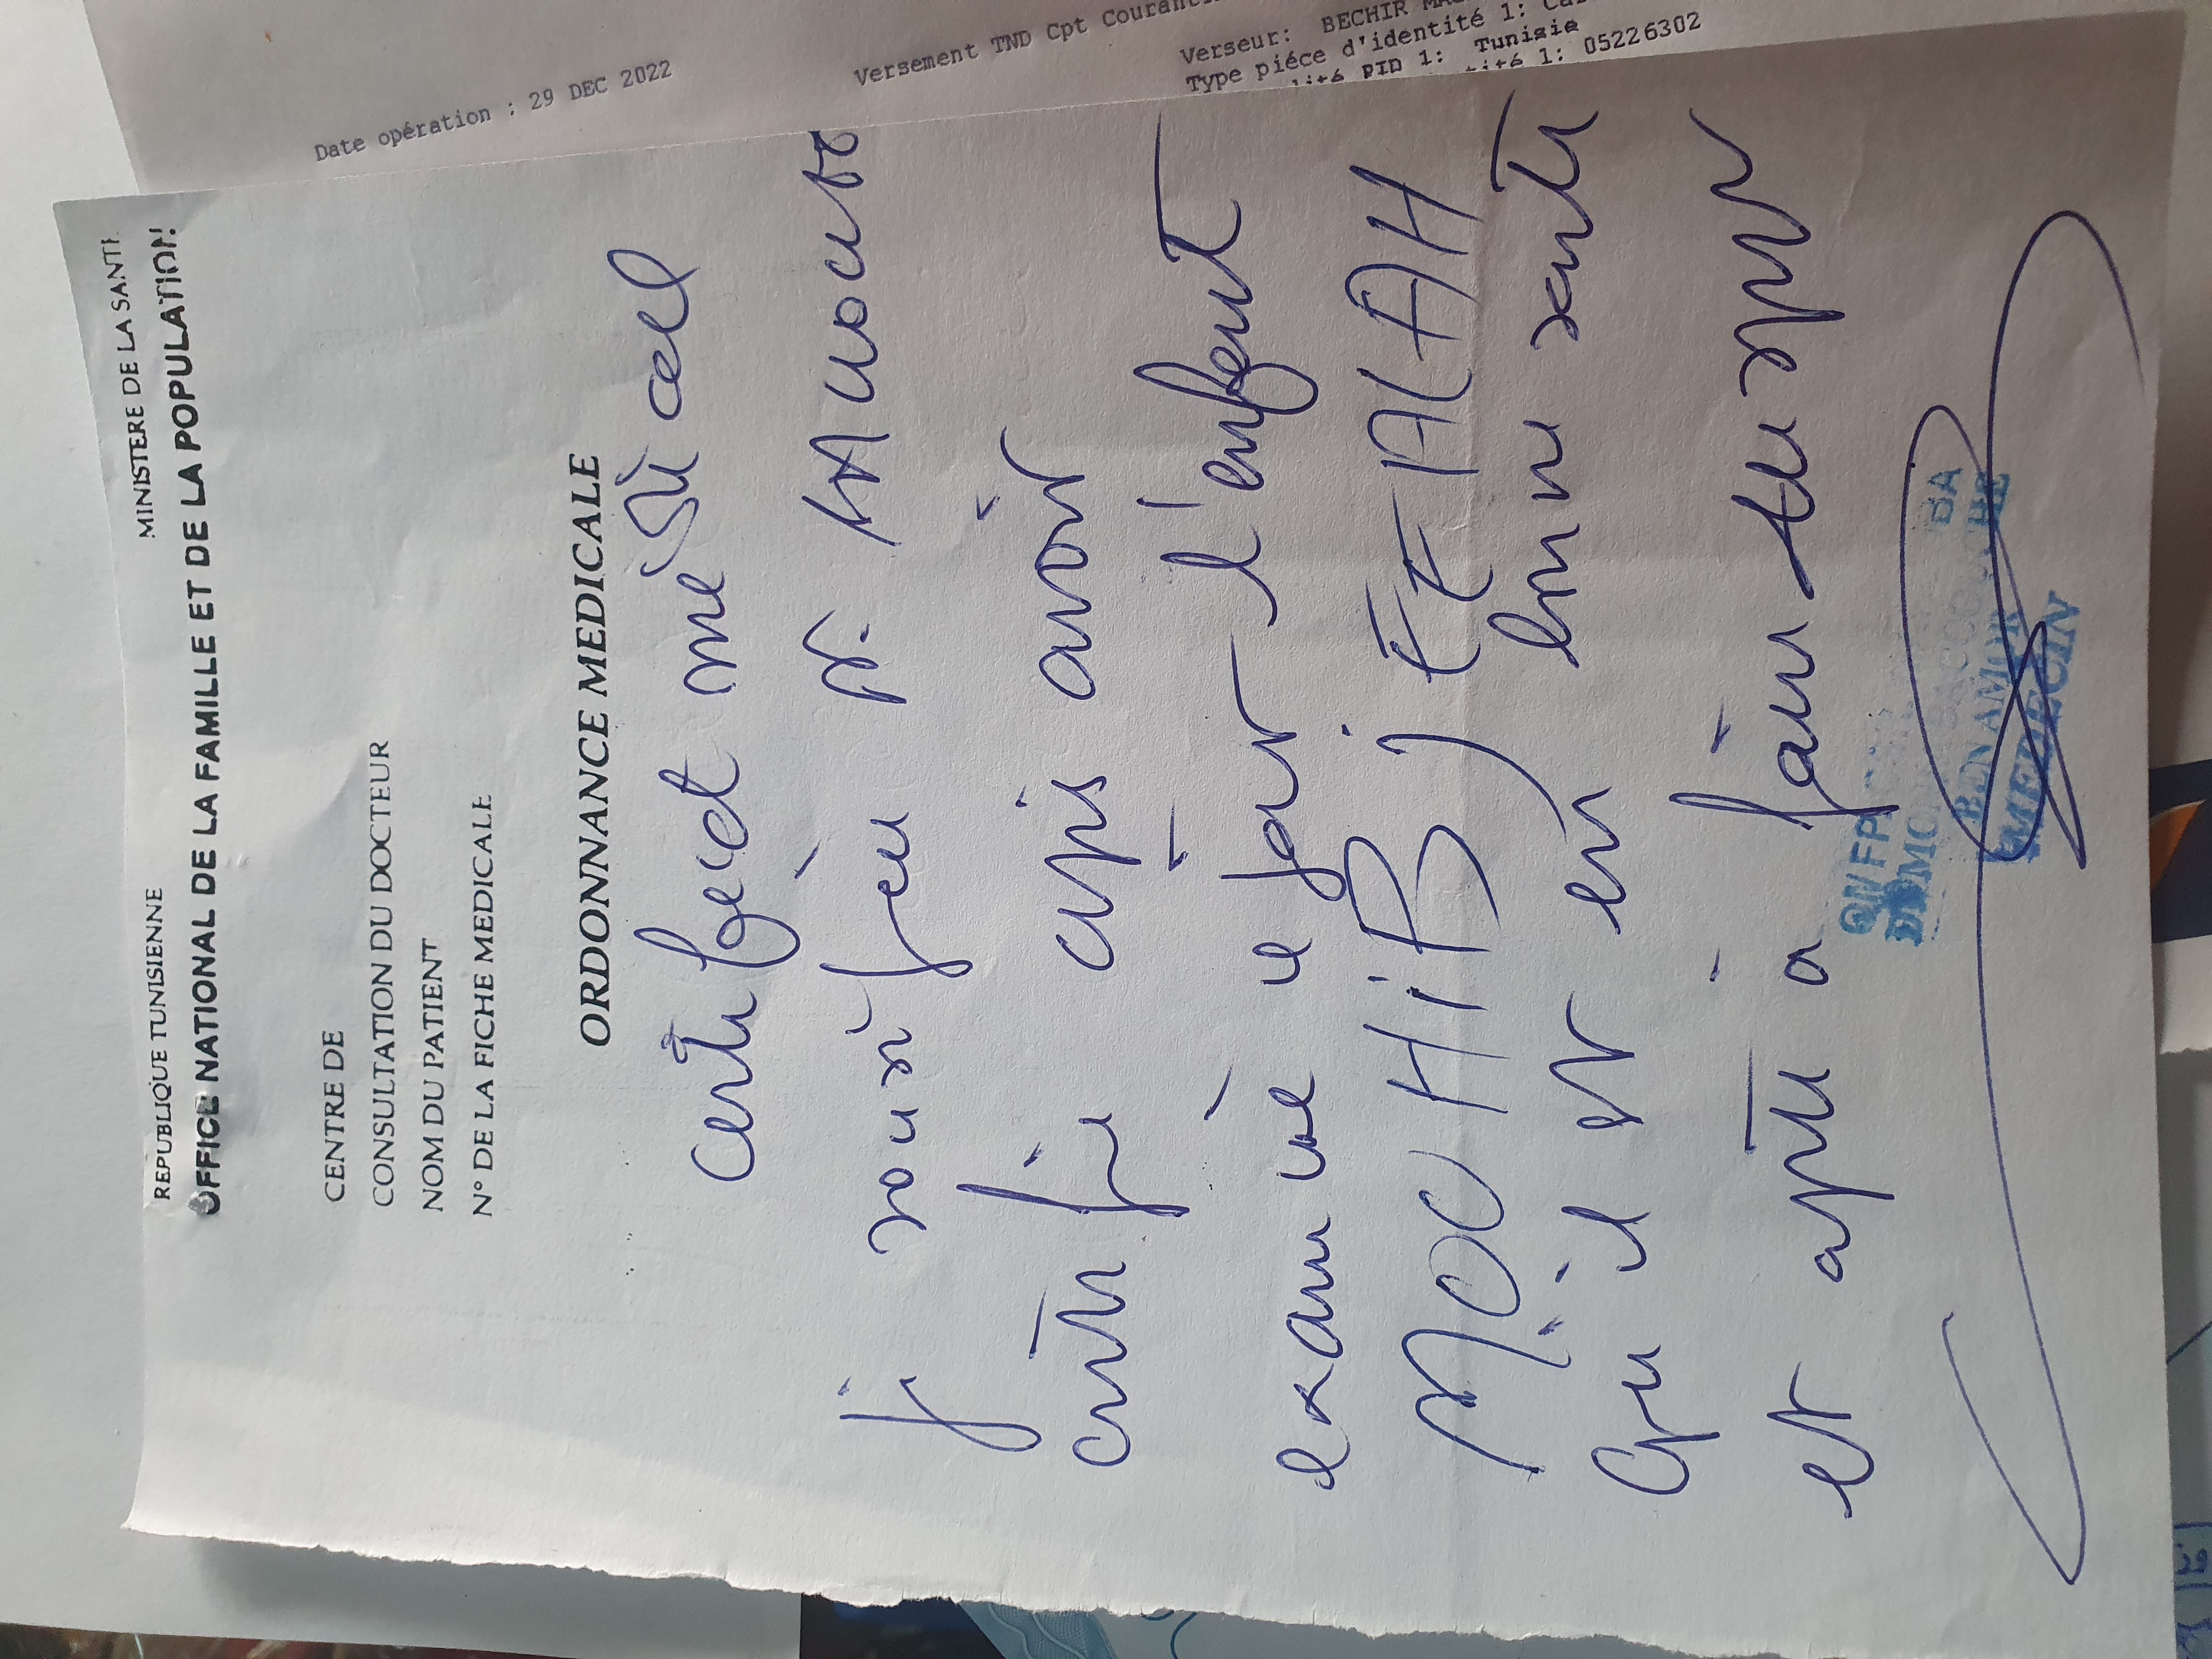 Date opération : 29 DEC 2022
Versement TND Cpt Courant
Verseur: BECHIR
Type piéce d'identité 1:
PID 1: Tunisie
1: 05226302
REPUBLIQUE TUNISIENNE MINISTERE DE LA SANTE
OFFICE NATIONAL DE LA FAMILLE ET DE LA POPULATION
CENTRE DE
CONSULTATION DU DOCTEUR
NOM DU PATIENT
N° DE LA FICHE MEDICALE
ORDONNANCE MEDICALE
Certificat médical
je soussigné Dr
certifie avoir
examiné ce jour l'enfant
MOUHIB
qu'il est en bonne santé
et apte à faire du sport
ONFP
BEN AMOR
MEDECIN